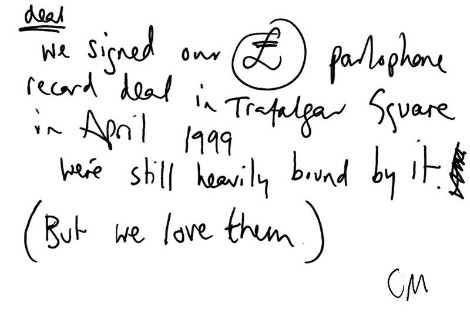 deal
we signed our £ parlophone
record deal in Trafalgar Square
in April 1999
We're still heavily bound by it.
(But we love them)
CM